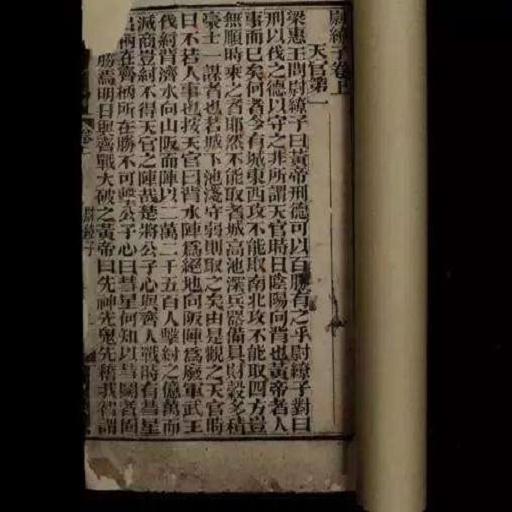 尉繚子卷上
天官第一
梁惠王問尉繚子曰黃帝刑德可以百勝有之乎尉繚子對曰
刑以伐之德以守之非所謂天官時日陰陽向背也黃帝者人
事而已矣何者今有城東西攻不能取南北攻不能取四方豈
無順時乘之者耶然不能取者城高池深兵器備具財穀多積
豪士一謀者也若城下池淺守弱則取之矣由是觀之天官時
日不若人事也按天官曰背水陣為絕地向阪陣為廢軍武王
伐紂背濟水向山阪而陣以二萬二千五百人擊紂之億萬而
滅商豈紂不得天官之陣哉楚將公子心與齊人戰時有彗星
出柄在齊柄所在勝不可擊公子心曰彗星何知以彗鬭者固
勝焉明日與齊戰大破之黃帝曰先神先鬼先稽我智謂
尉繚子